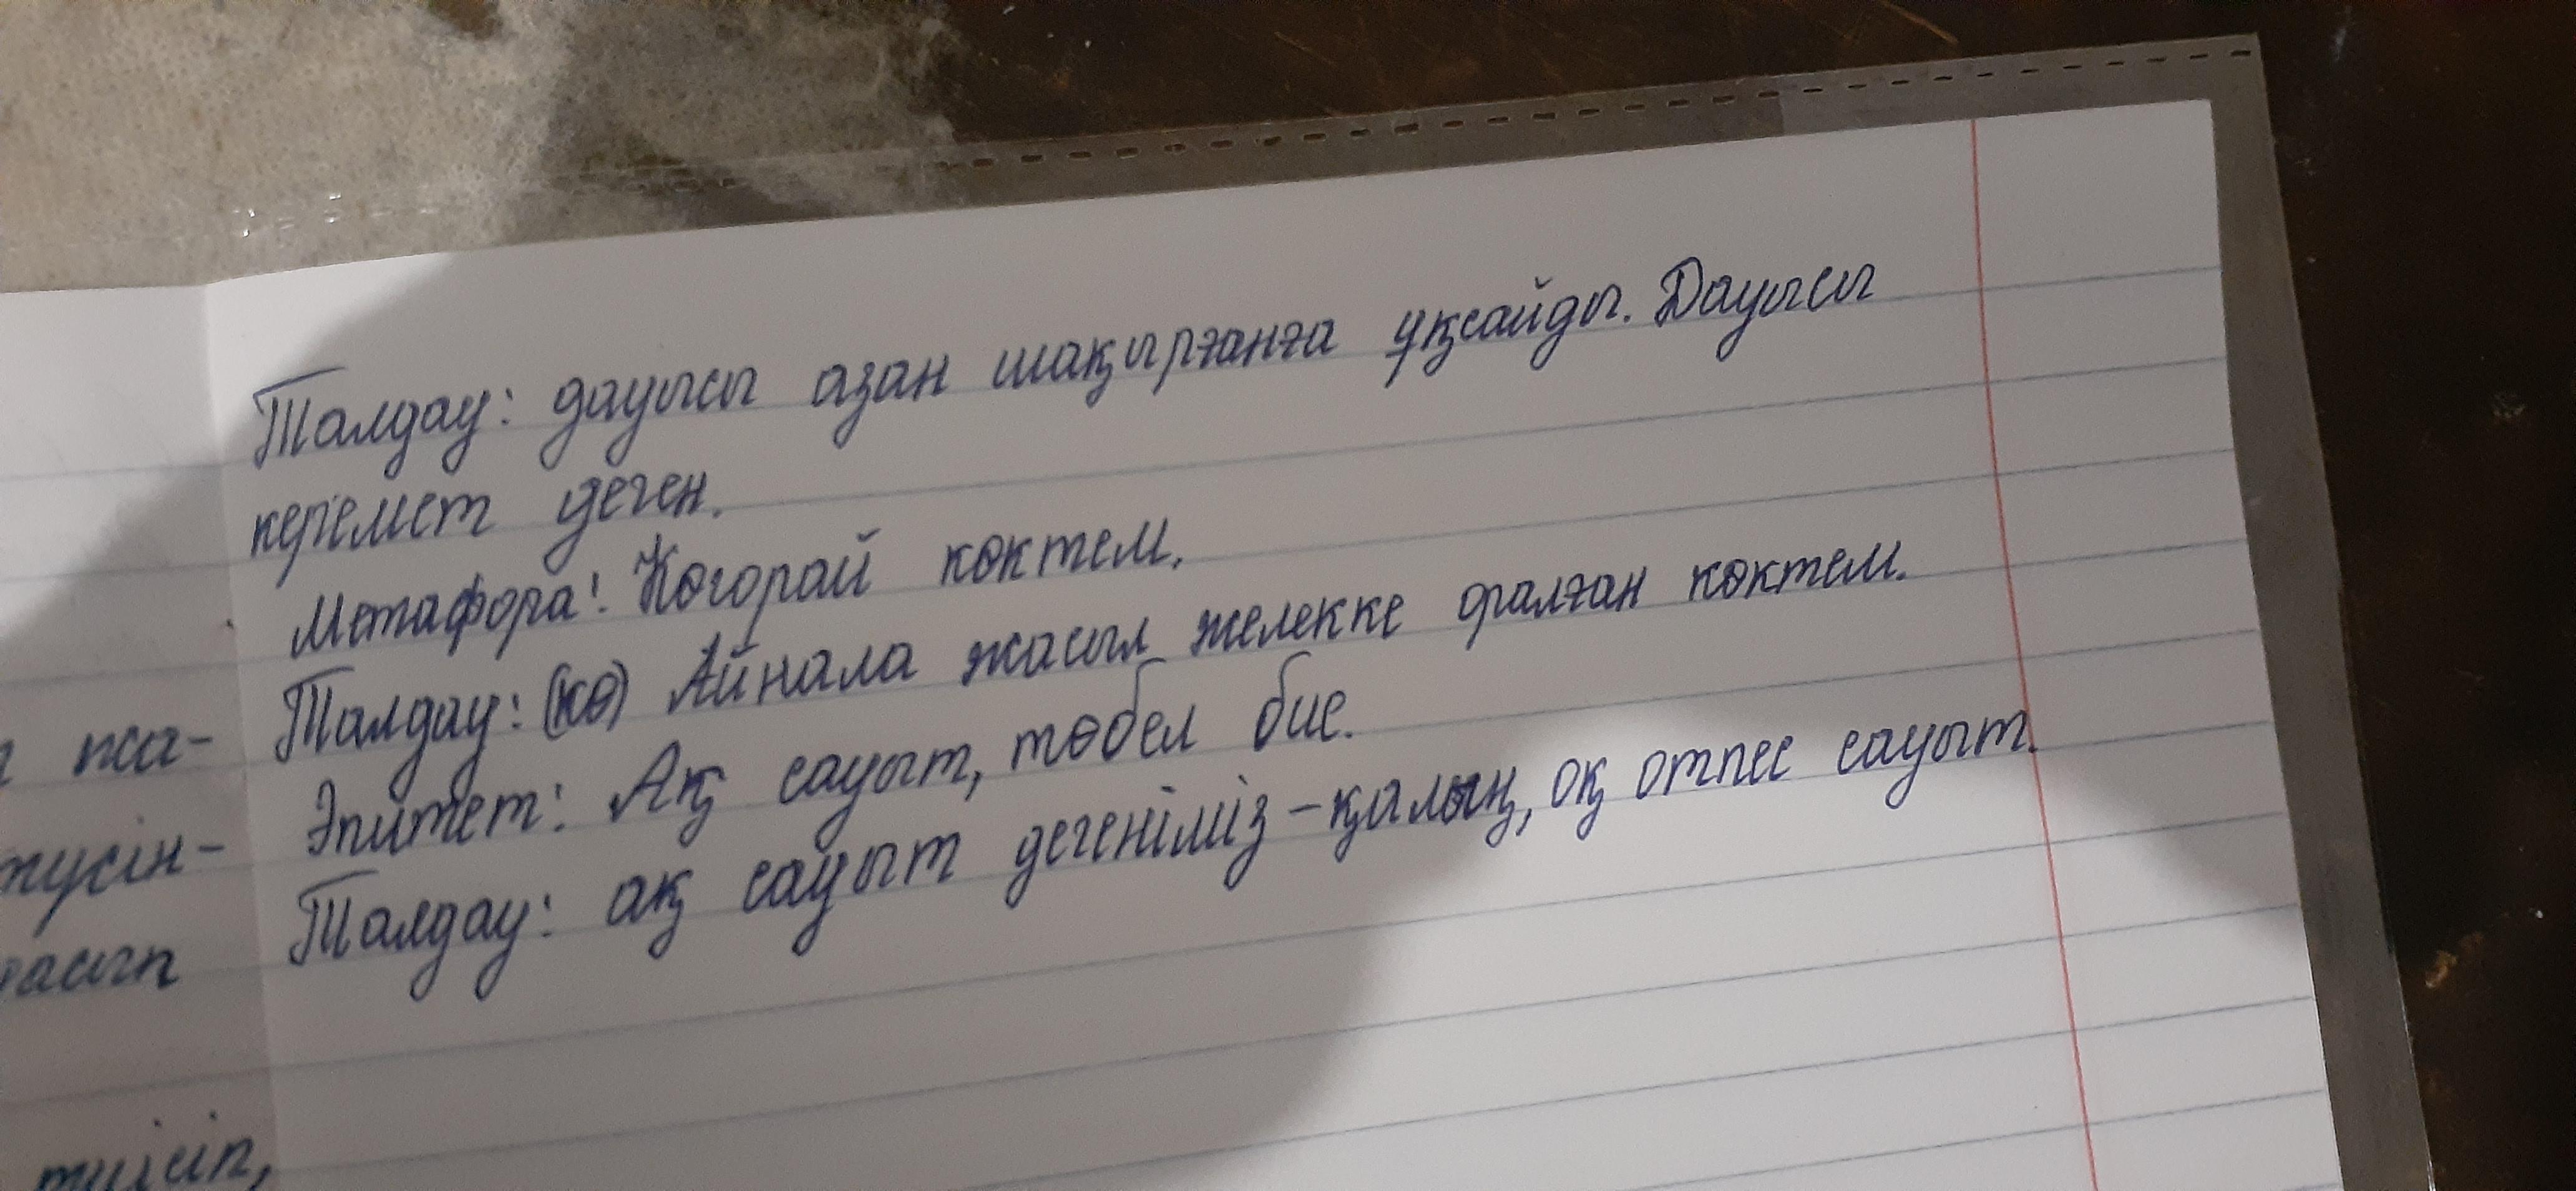 Талдау: дауысы азан шақырғанға ұқсайды. Дауысы
керемет деген.
Метафора: Көгорай көктем.
Талдау: (кө) Айнала жасыл желекке оралған көктем.
Эпитет: Ақ сауыт, төбел бие.
Талдау: ақ сауыт дегеніміз – қалың, оқ отпес сауыт.